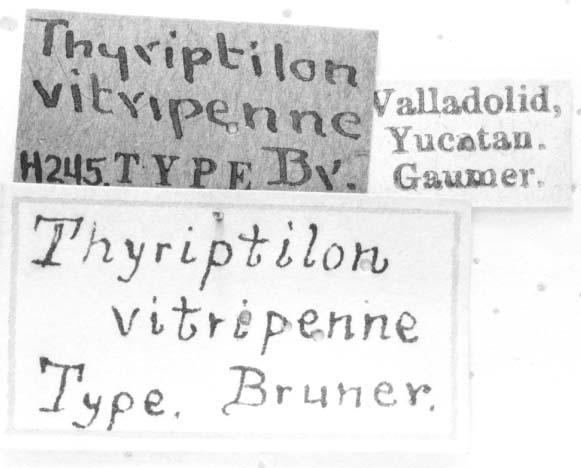 Thyriptilon
vitripenne
H245. TYPE Br.
Valladolid,
Yucatan.
Gaumer.
Thyriptilon
vitripenne
Type. Bruner.